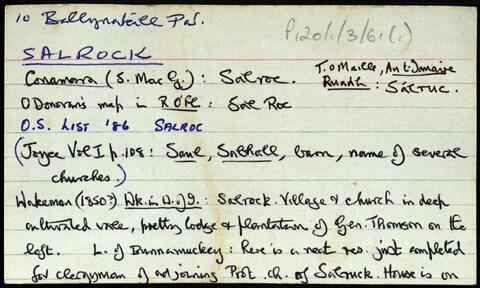 10 Ballynakill Par.
P120/1/3/6.(1)
SALROCK
Conamara (S. Mac G.) : Salroc.
T. O Maille, An t-Iomaire
Ruadh : Sálruc.
O Donovan's map in ROFC : Sal Roc
O.S. LIST '86 SALROC
(Joyce Vol I p. 108: Saul, Sabhall, barn, name of several
churches.)
Wakeman (1850?) Wk. in W. of I. : Salrock. Village & church in deep
cultivated vale, pretty lodge & plantation of Gen. Thomson on the
left. L. of Bunnamuckey : here is a neat res. just completed
for clergyman of adjoining Prot. ch. of Salruck. House is on